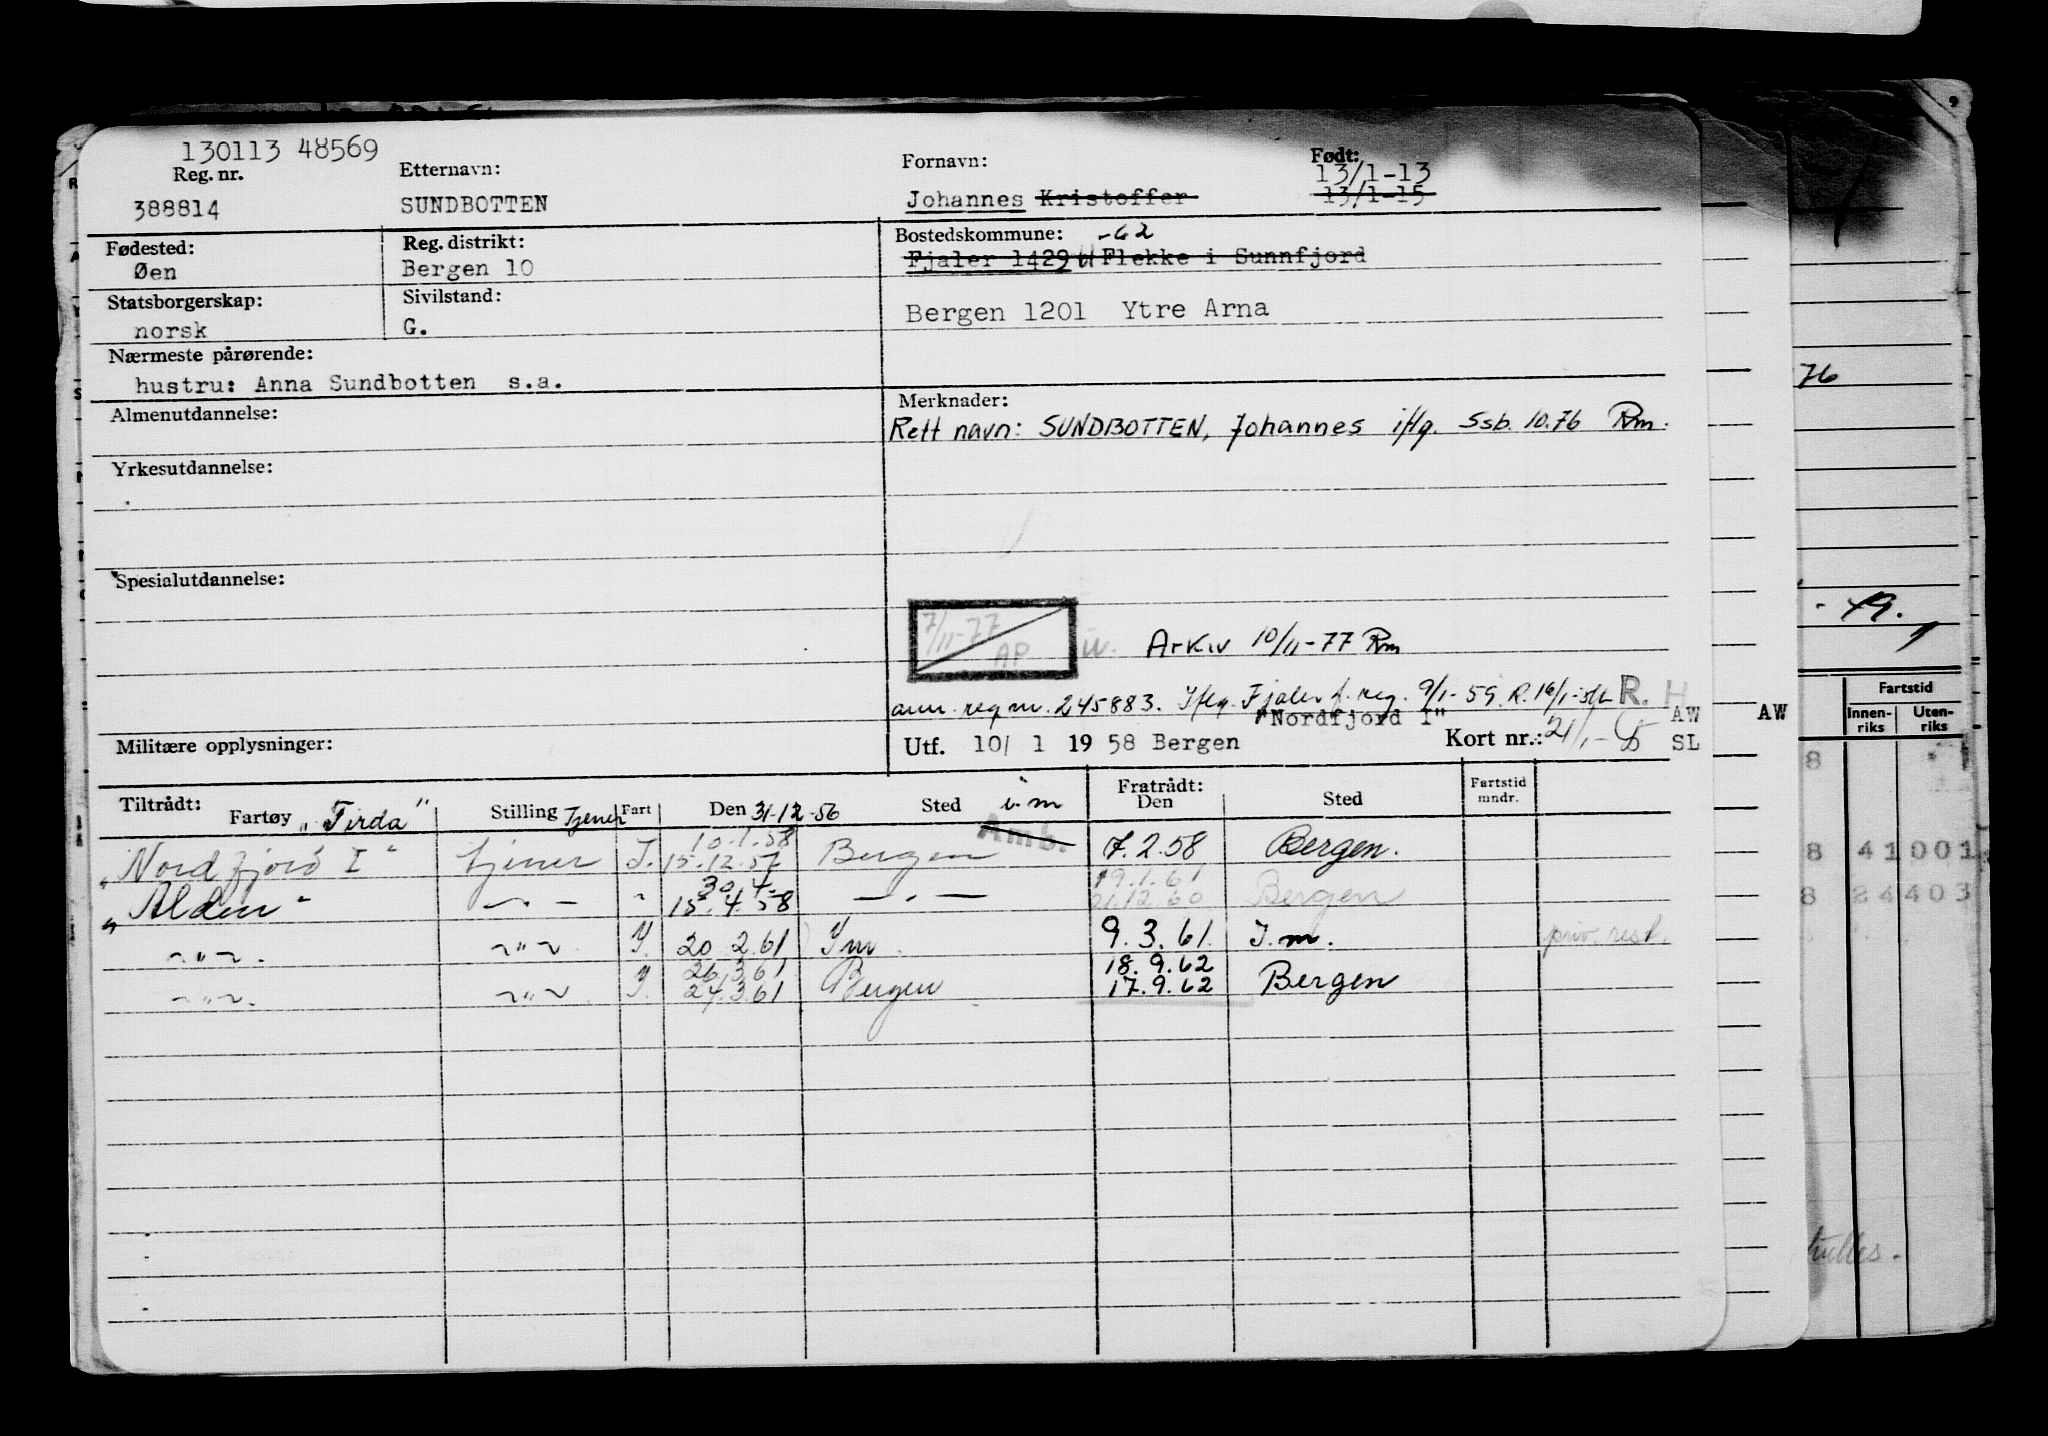 130113 48569
Reg. nr.
388814
Etternavn:
SUNDBOTTEN
Fornavn:
Johannes Kristoffer
Født:
13/1-13
13/1-15
Fødested:
Øen
Reg. distrikt:
Bergen 10
Bostedskommune: -62
Fjaler 1429 Flekke i Sunnfjord
Statsborgerskap:
norsk
Sivilstand:
G.
Bergen 1201 Ytre Arna
Nærmeste pårørende:
hustru: Anna Sundbotten s.a.
Almenutdannelse:
Merknader:
Rett navn: SUNDBOTTEN, Johannes iflg. Ssb. 10.76 Rm.
Yrkesutdannelse:
Spesialutdannelse:
7/11-77
AP
Arkiv 10/11-77 Rm
ann. reg nr. 245883. Iflg. Fjaler f. reg. 9/1-59. R. 16/1- R. H
"Nordfjord I" AW
Militære opplysninger:
Utf. 10/ 1 19 58 Bergen Kort nr.: 21/1- SL
Tiltrådt:
Fartøy "Firda" Stilling Tjener Fart Den 31-12-56 Sted i.m
Fratrådt:
Den Sted
Fartstid
mndr.
Amb.
10.1.58
"Nord fjord I" tjener I. 15.12.57 Bergen 7.2.58 Bergen.
30.4. 19.1.61
"Alden" — . — " 15.4.58 — . — 21.12.60 Bergen
~"~. ~"~. I. 20 2.61 I m. 9.3.61 I.m. priv. rest.
26.3.61 18.9.62
~"~. ~"~ I. 24.3.61 Bergen 17.9.62 Bergen
AW
76
-49.
Fartstid
Innen-
riks
Uten-
riks
8
8 41001
8 24403